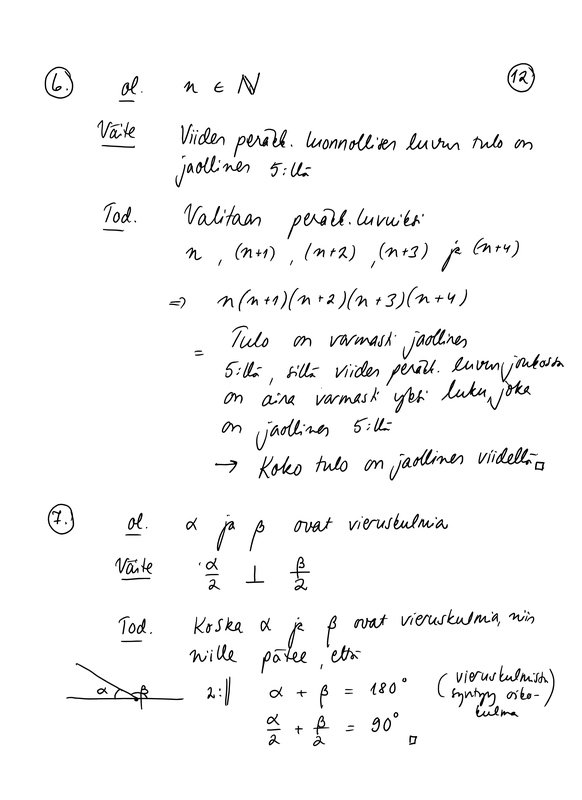 6. ol. n ∈ ℕ 12
Väite Viiden peräkk. luonnollisen luvun tulo on
jaollinen 5:llä
Tod. Valitaan peräkk. luvuiksi
n , (n+1) , (n+2) , (n+3) ja (n+4)
⇒ n(n+1)(n+2)(n+3)(n+4)
= Tulo on varmasti jaollinen
5:llä, sillä viiden peräkk. luvun joukosta
on aina varmasti yksi luku, joka
on jaollinen 5:llä
→ Koko tulo on jaollinen viidellä □
7. ol. α ja β ovat vieruskulmia
Väite α/2 ⊥ β/2
Tod. Koska α ja β ovat vieruskulmia, niin
niille pätee, että
α β 2:|| α + β = 180° (vieruskulmista
syntyy oiko-
kulma)
α/2 + β/2 = 90° □